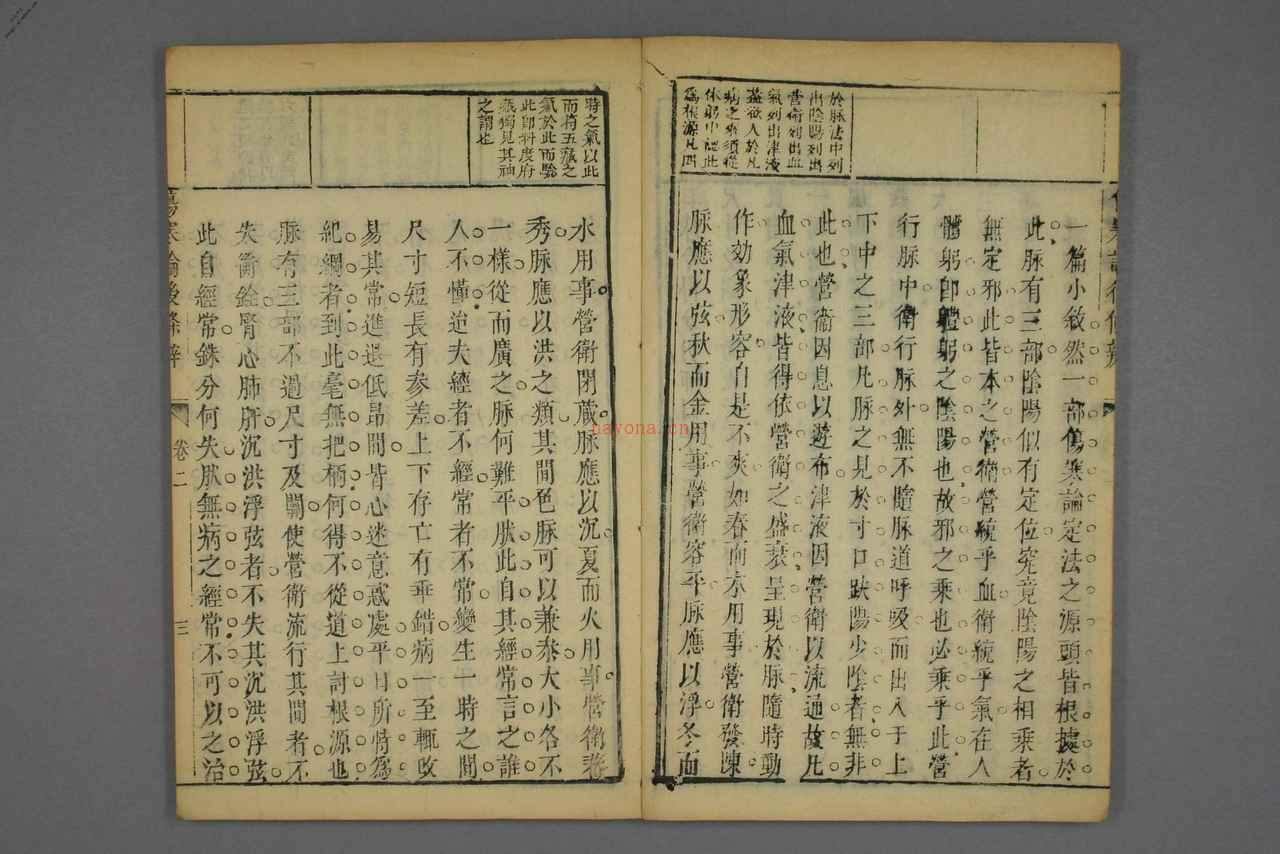 於脉法中列
出陰陽列出
營衛列出血
氣列出津液
蓋欲人於凡
病之來須從
体躬中認此
爲根源凡四
一篇小敘然一部傷寒論定法之源頭皆根據於
此脉有三部陰陽似有定位究竟陰陽之相乘者
無定邪此皆本之營衛營統乎血衛統乎氣在人
體躬卽體躬之陰陽也故邪之乘也必乘乎此營
行脉中衛行脉外無不隨脉道呼吸而出入于上
下中之三部凡脉之見於寸口趺陽少陰者無非
此也營衛因息以遊布津液因營衛以流通故凡
血氣津液皆得依營衛之盛衰呈現於脉隨時動
作効象形容自是不爽如春而木用事營衛發陳
脉應以弦秋而金用事營衛容平脉應以浮冬而
時之氣以此
而將五藏之
氣於此而驗
此卽料度府
藏獨見其神
之謂也
水用事營衛閉藏脉應以沉夏而火用事營衛蕃
秀脉應以洪之類其間色脉可以兼叅大小各不
一樣從而廣之脉何難平肰此自其經常言之誰
人不懂迨夫經者不經常者不常變生一時之間
尺寸短長有參差上下存亡有乖錯病一至輒改
易其常進退低昻間皆心迷意惑處平日所恃爲
紀綱者到此毫無把柄何得不從道上討根源也
脉有三部不過尺寸及關使營衛流行其間者不
失衡銓腎心肺肝沉洪浮弦者不失其沉洪浮弦
此自經常銖分何失肰無病之經常不可以之治
傷寒論後條辨
卷二
三
nayona.cn